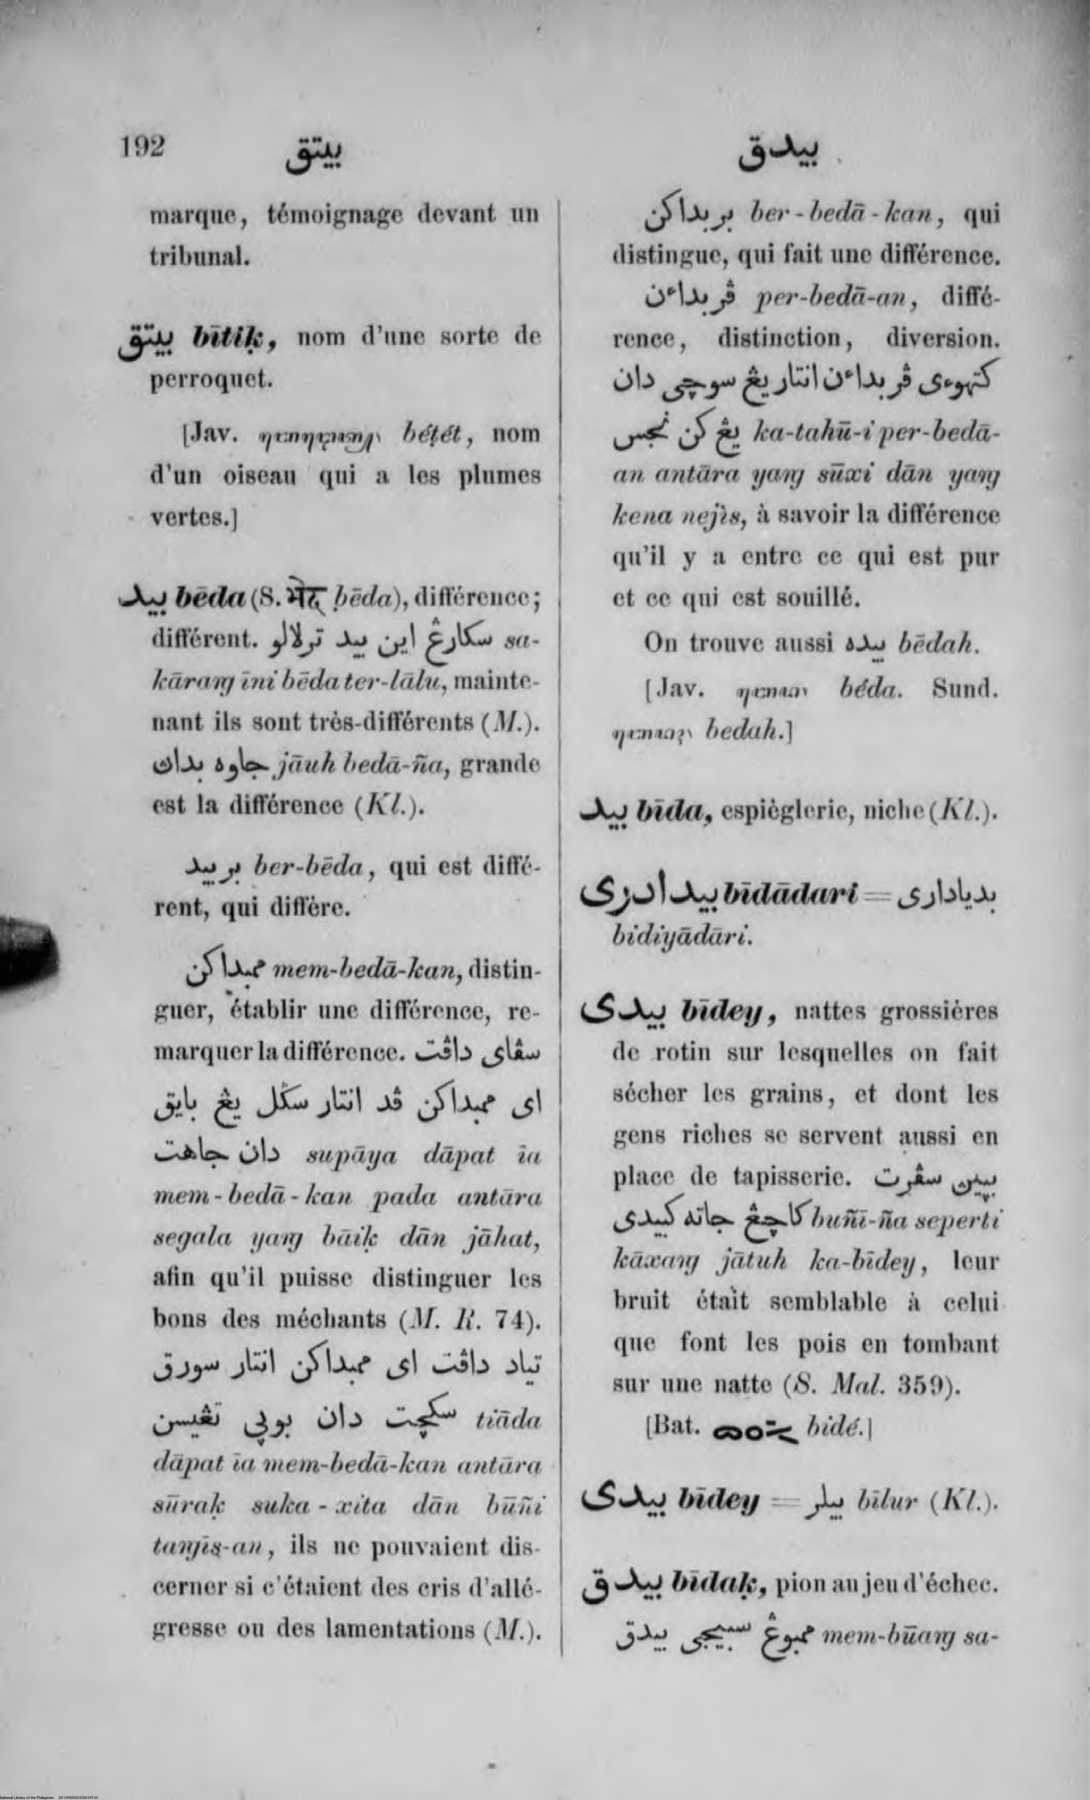 192
بيتق
marque, témoignage devant un
tribunal.
بيتق bītiḳ, nom d'une sorte de
perroquet.
[Jav. béṭét, nom
d'un oiseau qui a les plumes
vertes.]
بيد bēda (S. भेद् ḅēda), différence;
différent. سكارڠ اين بيد ترلالو sa-
kāraŋ īni bēda ter-lālu, mainte-
nant ils sont très-différents (M.).
جاوه بداڽ jāuh bedā-ña, grande
est la différence (Kl.).
بربيد ber-bēda, qui est diffé-
rent, qui diffère.
ممبداكن mem-bedā-kan, distin-
guer, établir une différence, re-
marquer la différence. سڤاى داڤت
اى ممبداكن ڤد انتار سݢل يڠ بايق
دان جاهت supāya dāpat īa
mem-bedā-kan pada antāra
segala yaŋ bāiḳ dān jāhat,
afin qu'il puisse distinguer les
bons des méchants (M. R. 74).
تياد داڤت اى ممبداكن انتار سورق
سكچت دان بوڽي تڠيسن tiāda
dāpat īa mem-bedā-kan antāra
sūraḳ suka-xita dān būñi
taŋīs-an, ils ne pouvaient dis-
cerner si c'étaient des cris d'allé-
gresse ou des lamentations (M.).
بيدق
بربداكن ber-bedā-kan, qui
distingue, qui fait une différence.
ڤربداءن per-bedā-an, diffé-
rence, distinction, diversion.
كتهوءى ڤربداءن انتار يڠ سوچي دان
يڠ كن نجس ka-tahū-i per-bedā-
an antāra yaŋ sūxi dān yaŋ
kena nejis, à savoir la différence
qu'il y a entre ce qui est pur
et ce qui est souillé.
On trouve aussi بيده bēdah.
[Jav. béda. Sund.
bedah.]
بيد bīda, espièglerie, niche (Kl.).
بيدادرى bīdādari = بدياداري
bidiyādāri.
بيدى bīdey, nattes grossières
de rotin sur lesquelles on fait
sécher les grains, et dont les
gens riches se servent aussi en
place de tapisserie. سڤرت
كاچڠ جاته كبيدى buñī-ña seperti
kāxaŋ jātuh ka-bīdey, leur
bruit était semblable à celui
que font les pois en tombant
sur une natte (S. Mal. 359).
[Bat. bidé.]
بيدى bīdey = بيلر bīlur (Kl.).
بيدق bīdaḳ, pion au jeu d'échec.
ممبوڠ سبيجي بيدق mem-būaŋ sa-